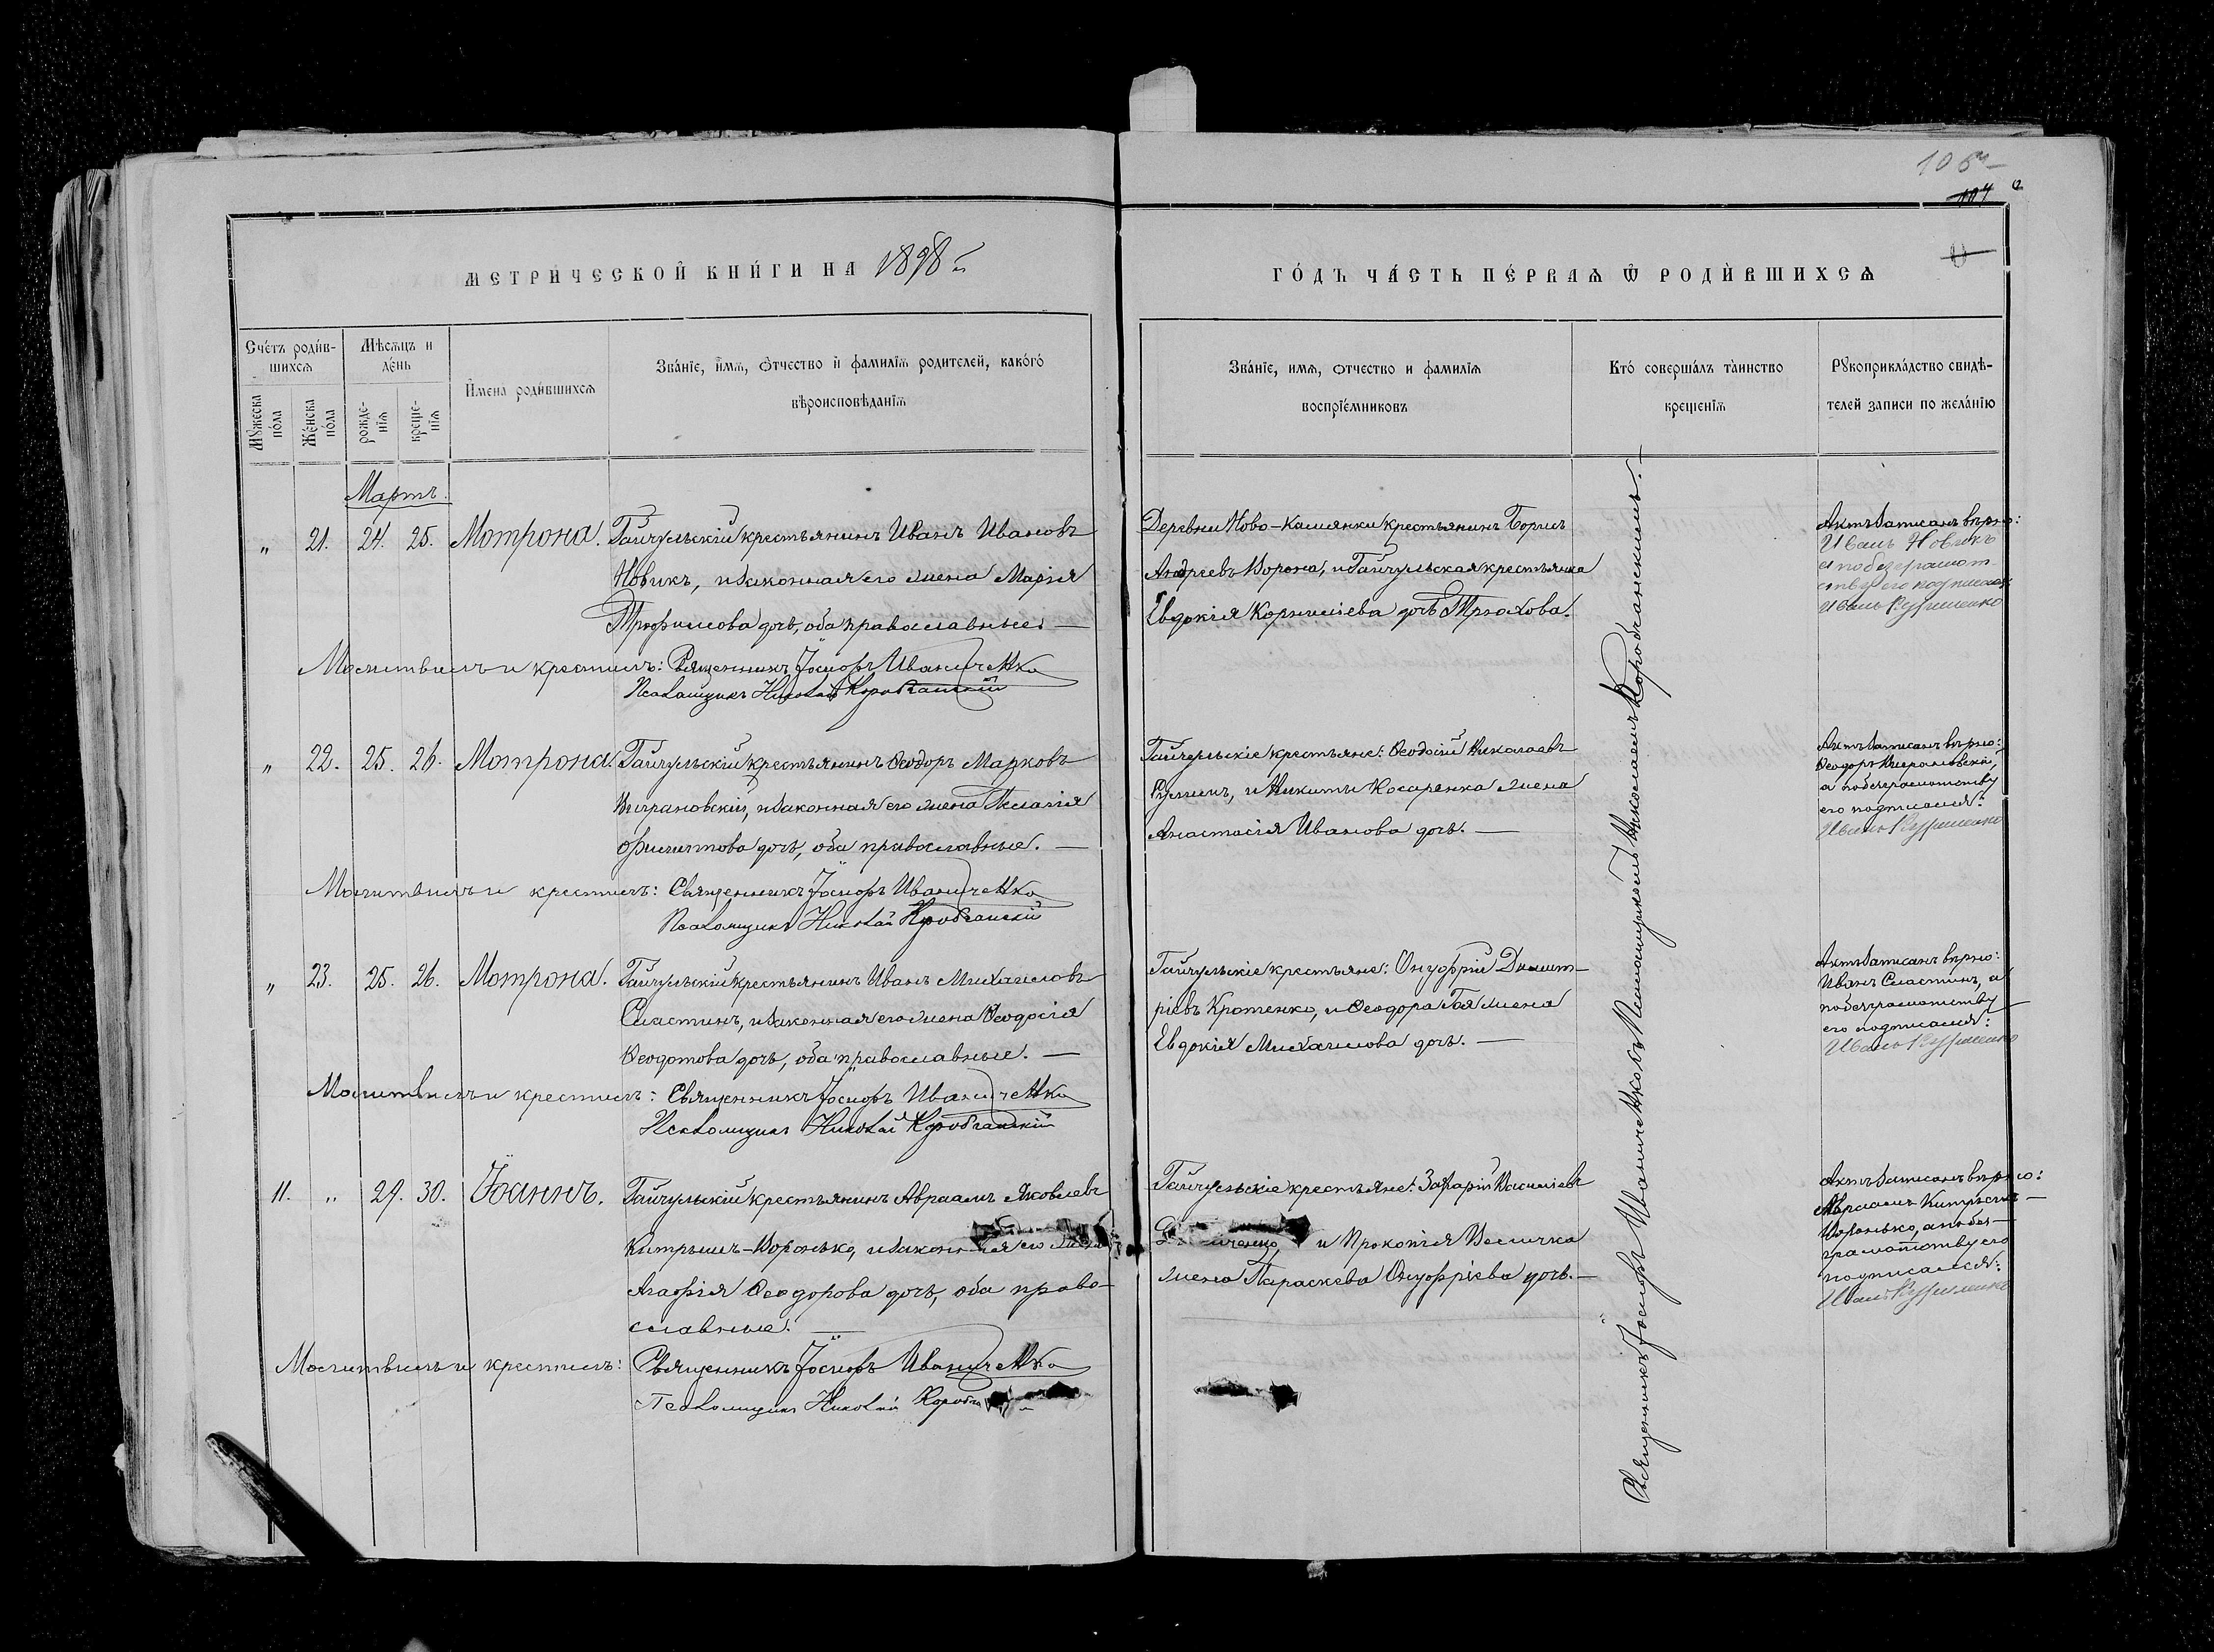 106
107
МЕТРИЧЕСКОЙ КНИГИ НА 1898 г.
ГОДЪ ЧАСТЬ ПЕРВАЯ Ѿ РОДИВШИХСЯ
Счетъ родив-
шихся
Мѣсяцъ и
день
Имена родившихся
Званіе, имя, отчество и фамилія родителей, какого
вѣроисповѣданія
Мужеска
пола
Женска
пола
рожде-
нія
креще-
нія
Званіе, имя, отчество и фамилія
воспріемниковъ
Кто совершалъ таинство
крещенія
Рукоприкладство свидѣ-
телей записи по желанію
Мартъ.
„ 21. 24. 25. Мотрона. Гайчульскій крестьянинъ Иванъ Ивановъ
Новикъ, и законная его жена Марія
Трофимова дочь, оба православные. —
Молитвилъ и крестилъ: Священникъ Іосифъ Иваниченко
Псаломщикъ Николай Коробчанскій
Деревни Ново-Камянки крестьянинъ Борисъ
Андреевъ Ворона, и Гайчульская крестьянка
Евдокія Корниліева дочь Трюхова.
Актъ записанъ вѣрно:
Иванъ Новикъ
а по безграмот-
ству его подписался
Иванъ Куриленко
„ 22. 25. 26. Мотрона. Гайчульскій крестьянинъ Ѳеодоръ Марковъ
Виграновскій, и законная его жена Пелагія
Филиппова дочь, оба православные. —
Молитвилъ и крестилъ: Священникъ Іосифъ Иваниченко
Псаломщикъ Николай Коробчанскій
Гайчульскіе крестьяне: Ѳеодосій Николаевъ
и Никиты Косаренка жена
Анастасія Иванова дочь. —
Актъ записанъ вѣрно:
Ѳеодоръ Виграновскій,
а по безграмотству
его подписался:
Иванъ Куриленко
„ 23. 25. 26. Мотрона. Гайчульскій крестьянинъ Иванъ Михаиловъ
Сластинъ, и законная его жена Ѳеодосія
Ѳеодотова дочь, оба православные. —
Молитвилъ и крестилъ: Священникъ Іосифъ Иваниченко
Псаломщикъ Николай Коробчанскій
Гайчульскіе крестьяне: Онуфрій Димит-
ріевъ Кротенко, и Ѳеодора Гая жена
Евдокія Михаилова дочь. —
Актъ записанъ вѣрно:
Иванъ Сластинъ, а
по безграмотству
его подписался:
Иванъ Куриленко
11. „ 29. 30. Іоаннъ. Гайчульскій крестьянинъ Авраамъ Яковлевъ
Китрышъ-Воронько, и законная его жена
Агафія Ѳеодорова дочь, оба право-
славные. —
Молитвилъ и крестилъ: Священникъ Іосифъ Иваниченко
Псаломщикъ Николай
Гайчульскіе крестьяне: Захарій Василіевъ
и Прокопія Величка
жена Параскева Онуфріева дочь. —
Актъ записанъ вѣрно:
Авраамъ Китрышъ-
Воронько, а по без-
грамотству его
подписался:
Иванъ Куриленко
Священникъ Іосифъ Иваниченко съ Псаломщикомъ Николаемъ Коробчанскимъ. —